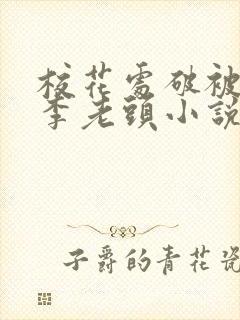 校花處破被
李老頭小說
子爵的青花瓷